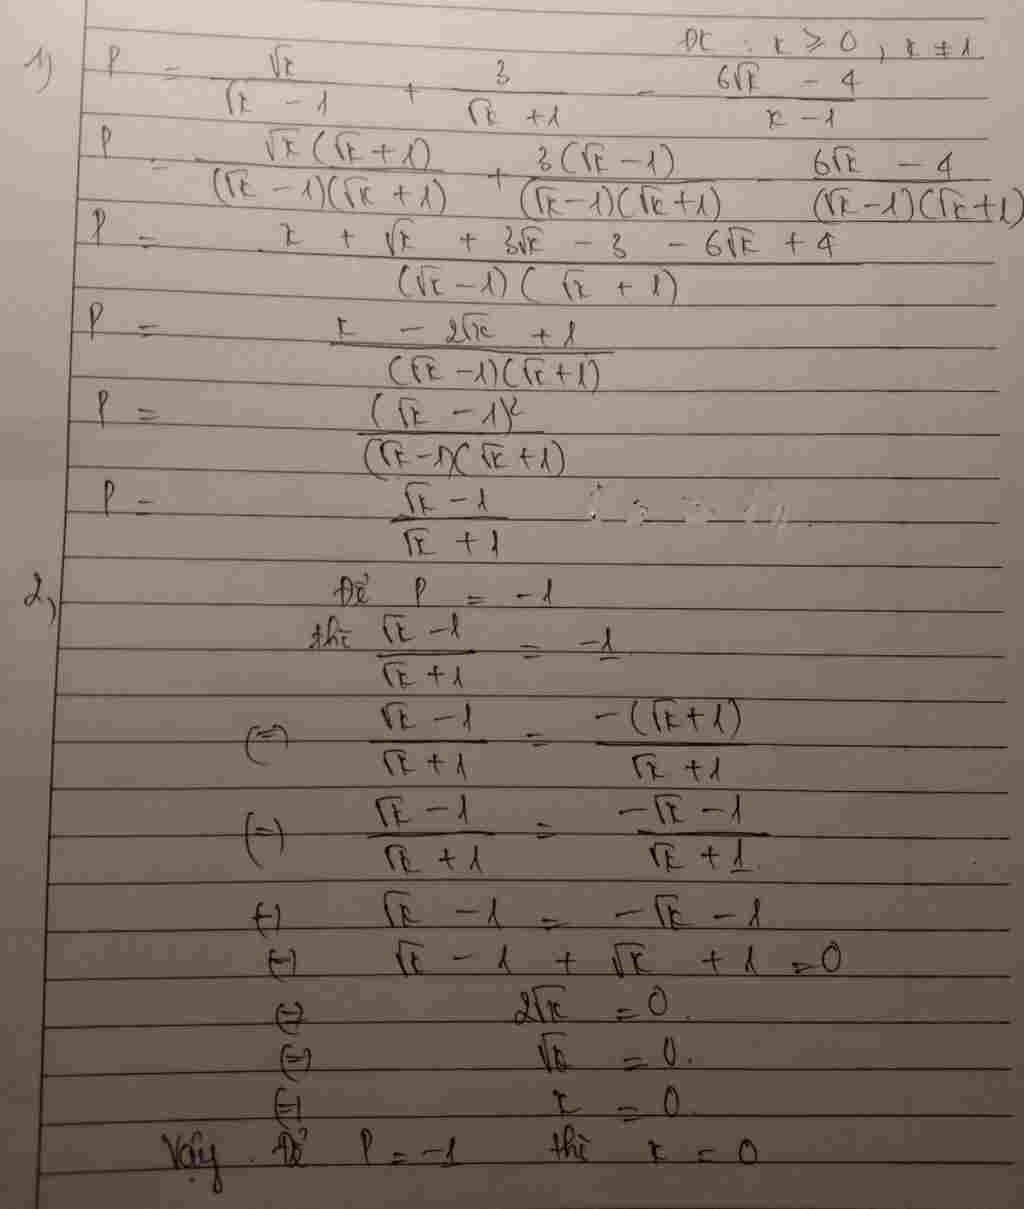 ĐK : x ≥ 0 , x ≠ 1
1) P = √x / (√x - 1) + 3 / (√x + 1) - (6√x - 4) / (x - 1)
P = √x(√x + 1) / (√x - 1)(√x + 1) + 3(√x - 1) / (√x - 1)(√x + 1) - (6√x - 4) / (√x - 1)(√x + 1)
P = (x + √x + 3√x - 3 - 6√x + 4) / (√x - 1)(√x + 1)
P = (x - 2√x + 1) / (√x - 1)(√x + 1)
P = (√x - 1)² / (√x - 1)(√x + 1)
P = (√x - 1) / (√x + 1)
2, Để P = -1
thì (√x - 1) / (√x + 1) = -1
(=) (√x - 1) / (√x + 1) = -(√x + 1) / (√x + 1)
(=) (√x - 1) / (√x + 1) = (-√x - 1) / (√x + 1)
(=) √x - 1 = -√x - 1
(=) √x - 1 + √x + 1 = 0
(=) 2√x = 0.
(=) √x = 0.
(=) x = 0
Vậy Để P = -1 thì x = 0